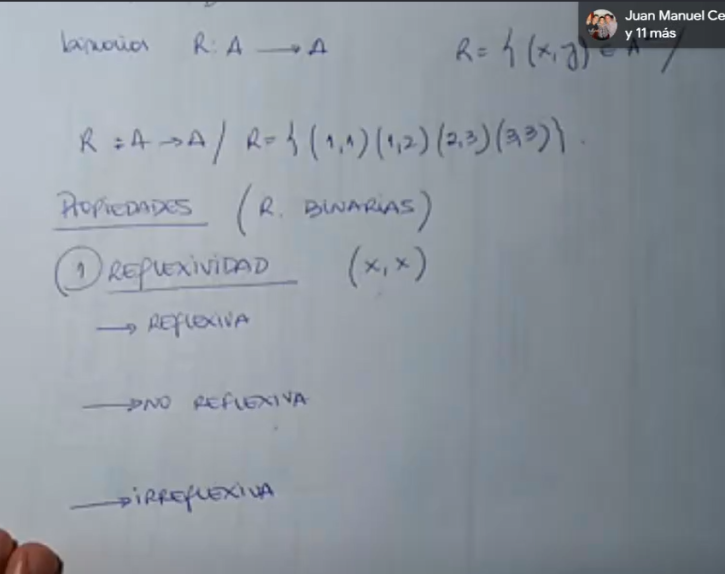 Juan Manuel Ce
y 11 más
binarios R: A → A R = { (x, y) ∈ A² /
R : A → A / R = { (1,1) (1,2) (2,3) (3,3) }.
PROPIEDADES (R. BINARIAS)
① REFLEXIVIDAD (x, x)
→ REFLEXIVA
→ NO REFLEXIVA
→ IRREFLEXIVA